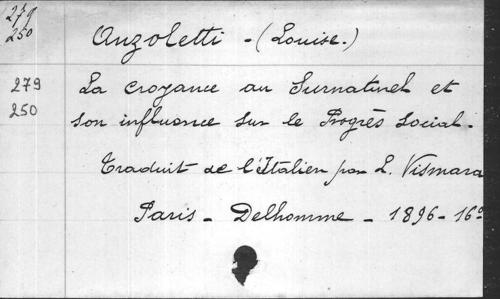 279
250
Anzoletti - (Louise.)
279
250
La croyance au Surnaturel et
son influence sur le Progrès social.
Traduit de l'Italien par L. Vismara
Paris - Delhomme - 1896 - 16º